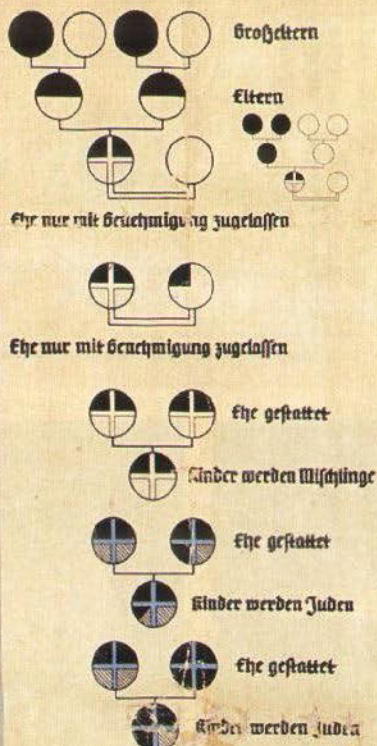 Großeltern
Eltern
Ehe nur mit Genehmigung zugelassen
Ehe nur mit Genehmigung zugelassen
Ehe gestattet
Kinder werden Mischlinge
Ehe gestattet
Kinder werden Juden
Ehe gestattet
Kinder werden Juden